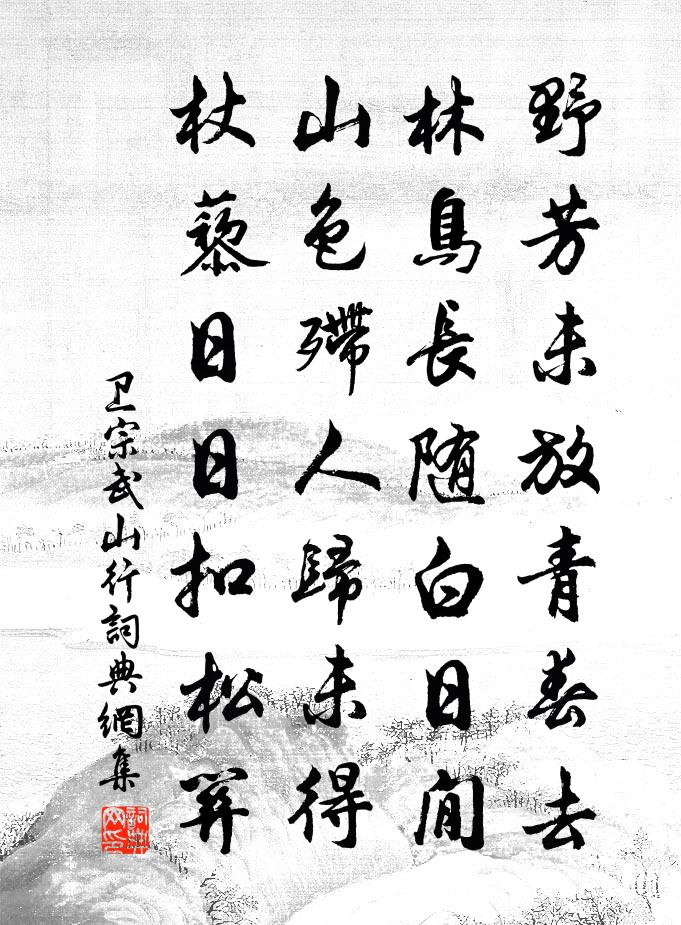 野芳未放青春去
林鳥長随白日閒
山色殢人歸未得
杖藜日日扣松關
卫宗武山行詞典網集
詞典网印